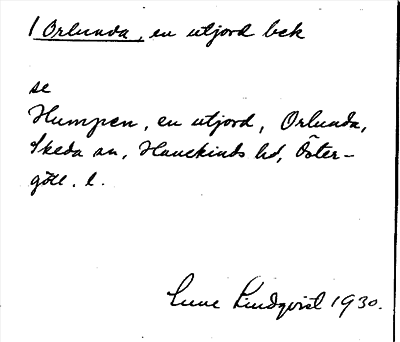 / Örlunda, en utjord bek
se
Humpen, en utjord, Örlunda,
Skeda sn, Hanekinds hd, Öster-
götl. l.
Sune Lindqvist 1930.